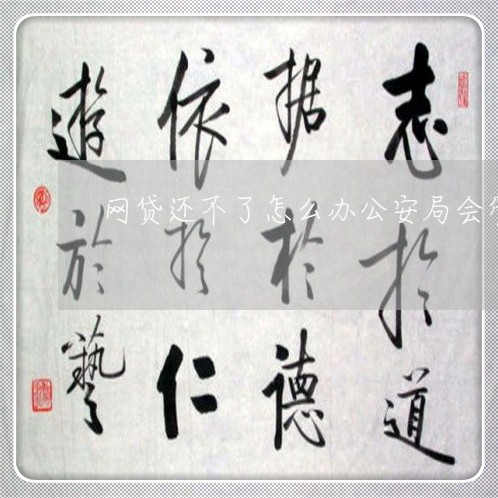 志於道
据於德
依於仁
遊於藝
网贷还不了怎么办公安局会